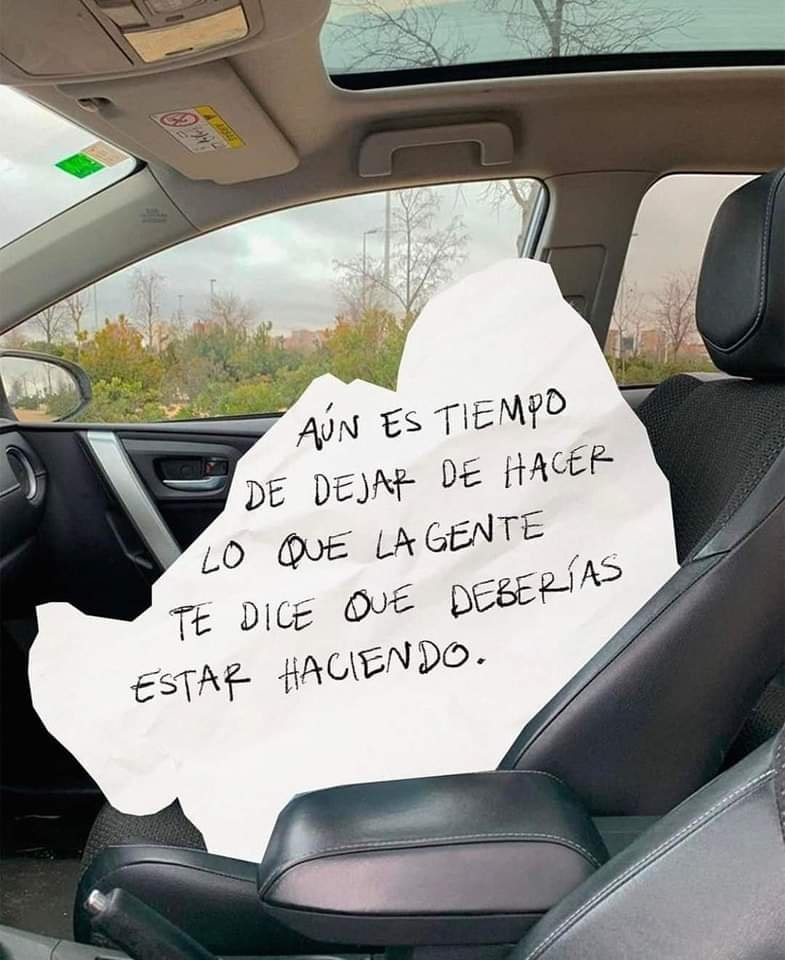 AÚN ES TIEMPO
DE DEJAR DE HACER
LO QUE LA GENTE
TE DICE QUE DEBERÍAS
ESTAR HACIENDO.